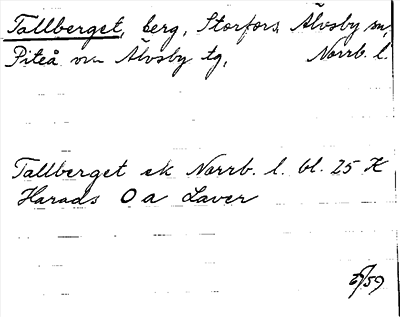 Tallberget, berg, Storfors, Älvsby sn,
Piteå och Älvsby tg, Norrb. l.
Tallberget ek Norrb. l. bl. 25 K
Harads O a Laver
/59